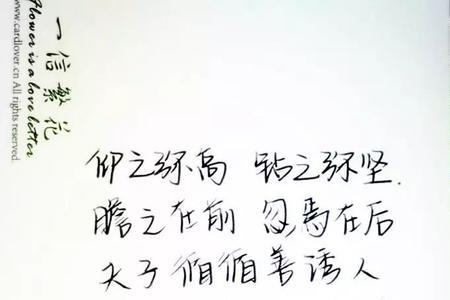 一信繁花
Flower is a love letter
www.cardlover.cn All rights reserved.
仰之弥高 钻之弥坚.
瞻之在前 忽焉在后
夫子循循善诱人